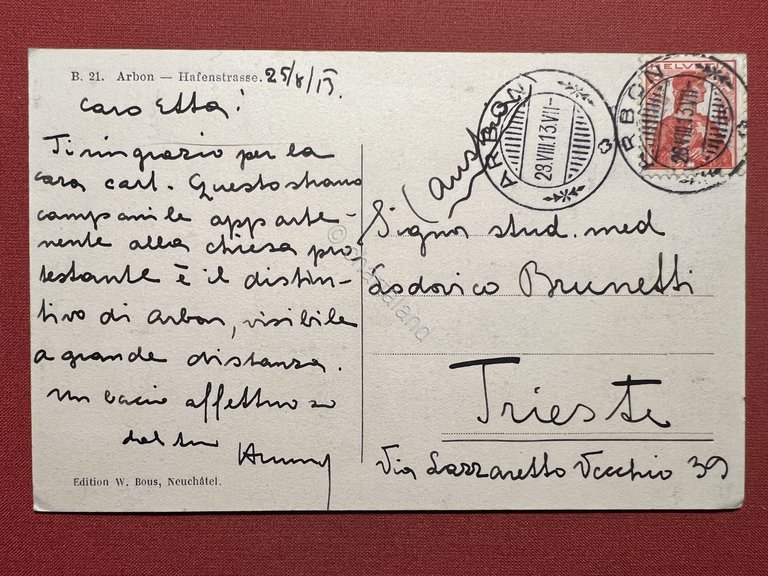 B. 21. Arbon — Hafenstrasse. 25/8/13.
caro Etta!
Ti ringrazio per la
cara cart. Questo strano
campanile apparte-
nente alla chiesa pro-
testante è il distin-
tivo di Arbon, visibile
a grande distanza.
Un bacio affettuoso
dal tuo
Edition W. Bous, Neuchâtel.
ARBON
28.VIII.13.VII-
ARBON
28.VIII.13.VII-
HELV
(Austria)
Signor stud. med
Lodovico Brunetti
Trieste
Via Lazzaretto Vecchio 39